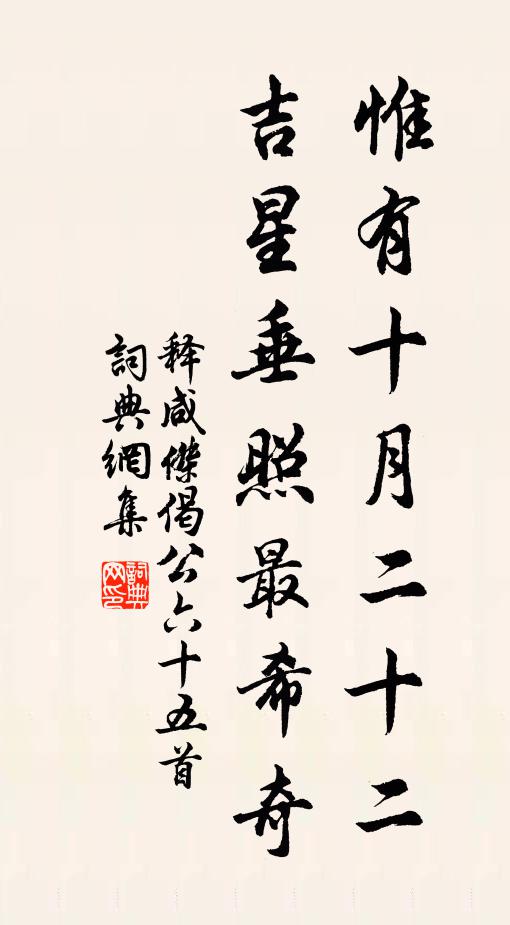 惟有十月二十二
吉星垂照最希奇
释咸傑偈公六十五首
詞典網集
詞典网印